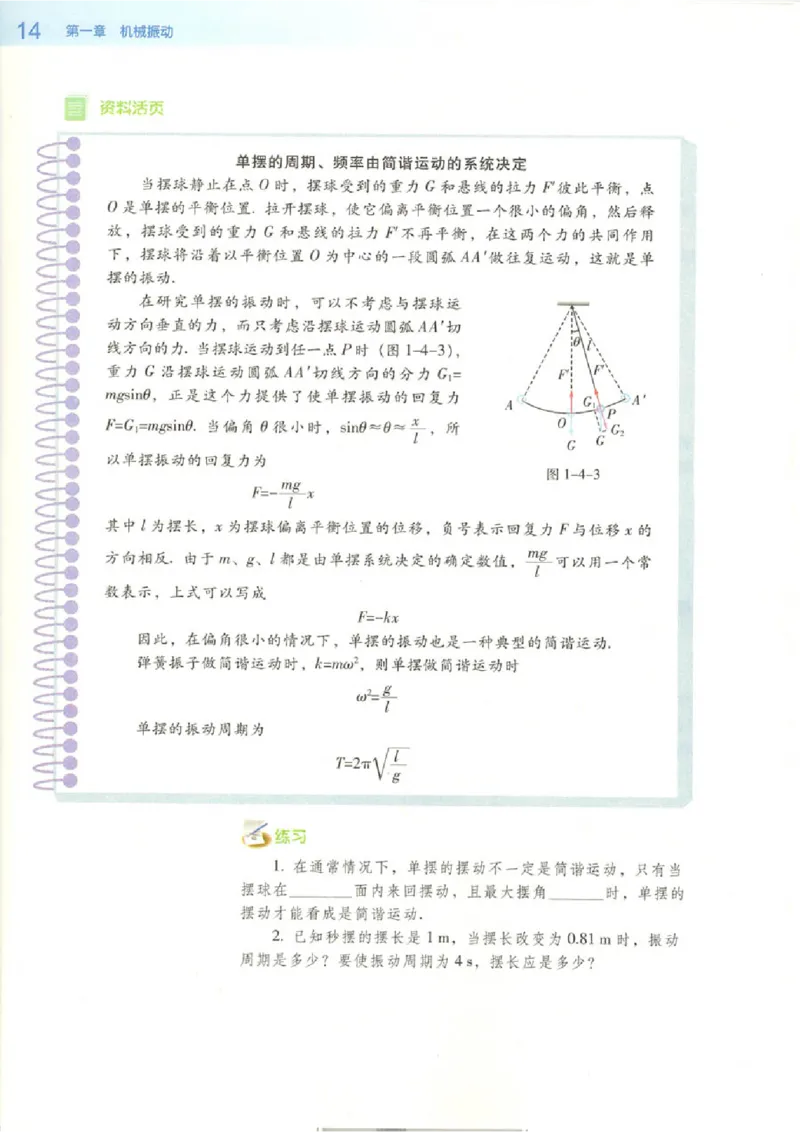 14 第一章 机械振动
资料活页
单摆的周期、频率由简谐运动的系统决定
当摆球静止在点 O 时，摆球受到的重力 G 和悬线的拉力 F′彼此平衡，点
O 是单摆的平衡位置. 拉开摆球，使它偏离平衡位置一个很小的偏角，然后释
放，摆球受到的重力 G 和悬线的拉力 F′不再平衡，在这两个力的共同作用
下，摆球将沿着以平衡位置 O 为中心的一段圆弧 AA′做往复运动，这就是单
摆的振动.
在研究单摆的振动时，可以不考虑与摆球运
动方向垂直的力，而只考虑沿摆球运动圆弧 AA′切
线方向的力. 当摆球运动到任一点 P 时（图 1-4-3），
重力 G 沿摆球运动圆弧 AA′切线方向的分力 G₁=
mgsinθ，正是这个力提供了使单摆振动的回复力
F=G₁=mgsinθ. 当偏角 θ 很小时，sinθ≈θ≈x/l，所
以单摆振动的回复力为
F=-mg/l x
θ l
F′ F′
A G₁ P A′
O G₂
G G
图 1-4-3
其中 l 为摆长，x 为摆球偏离平衡位置的位移，负号表示回复力 F 与位移 x 的
方向相反. 由于 m、g、l 都是由单摆系统决定的确定数值，mg/l 可以用一个常
数表示，上式可以写成
F=-kx
因此，在偏角很小的情况下，单摆的振动也是一种典型的简谐运动.
弹簧振子做简谐运动时，k=mω²，则单摆做简谐运动时
ω²=g/l
单摆的振动周期为
T=2π√(l/g)
练习
1. 在通常情况下，单摆的摆动不一定是简谐运动，只有当
摆球在______面内来回摆动，且最大摆角______时，单摆的
摆动才能看成是简谐运动.
2. 已知秒摆的摆长是 1 m，当摆长改变为 0.81 m 时，振动
周期是多少？要使振动周期为 4 s，摆长应是多少？